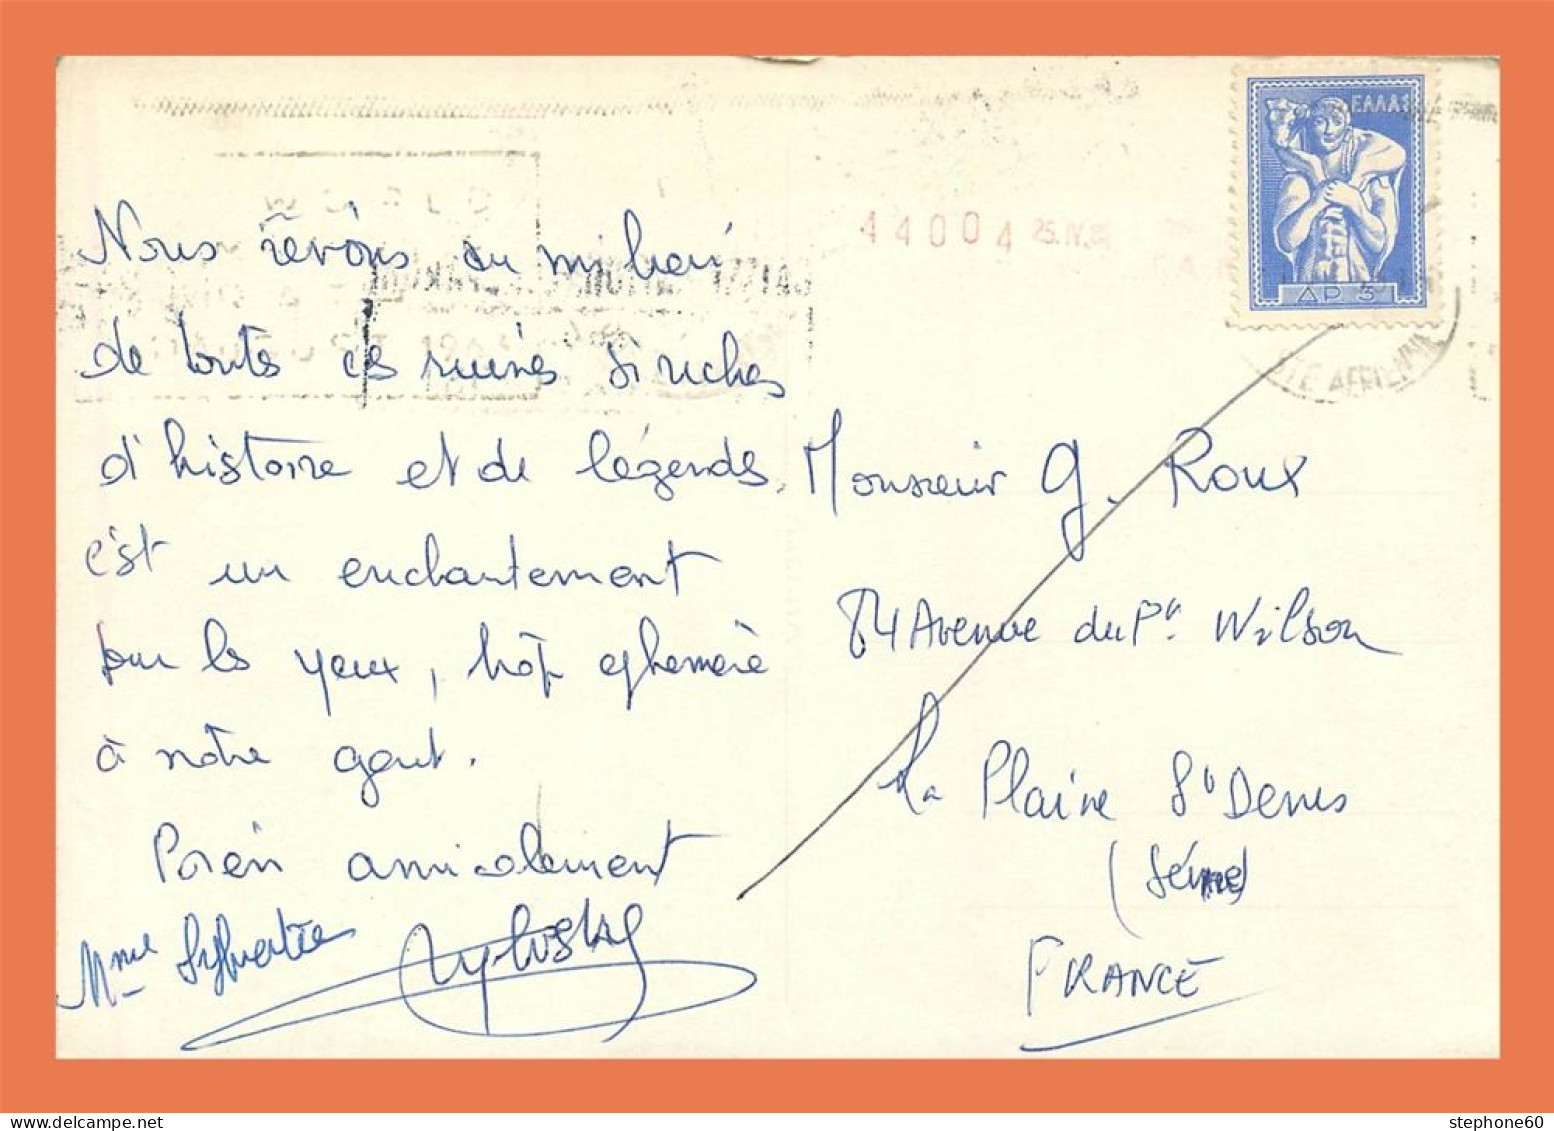 Nous rêvons au milieu
de toutes ces ruines si riches
d'histoire et de légendes,
c'est un enchantement
pour les yeux, trop ephemère
à notre gout.
amicalement
Mme Sylvestre
44004 25.IV.
ΕΛΛΑΣ
ΔΡ 5
Monsieur G. Roux
84 Avenue du Pt. Wilson
La Plaine St Denis
(Seine)
FRANCE
stephone60